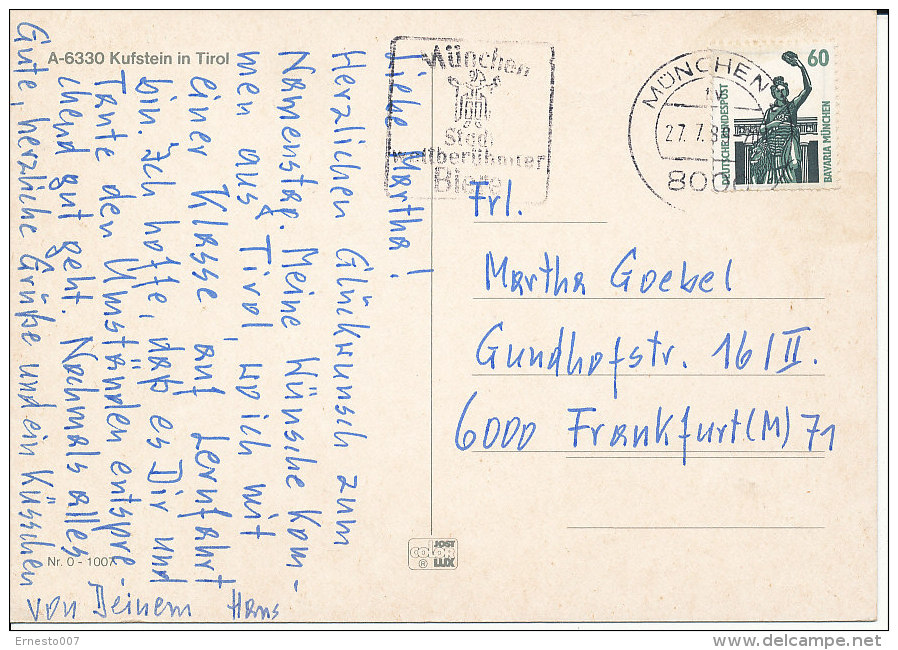 A-6330 Kufstein in Tirol
Liebe Martha!
Herzlichen Glückwunsch zum
Namenstag. Meine Wünsche kom-
men aus Tirol, wo ich mit
einer Klasse auf Lernfahrt
bin. Ich hoffe, daß es Dir und
Tante den Umständen entspre-
chend gut geht. Nochmals alles
Gute, herzliche Grüße und ein Küsschen
von Deinem Hans
Nr. 0 - 1007
München
Stadt
weltberühmter
Biere
MÜNCHEN
27.7.8
800
60
DEUTSCHE BUNDESPOST
BAVARIA MÜNCHEN
Frl.
Martha Goebel
Gundhofstr. 16/II.
6000 Frankfurt(M) 71
JOST
COLOR
LUX
®
Ernesto007
delcampe.net